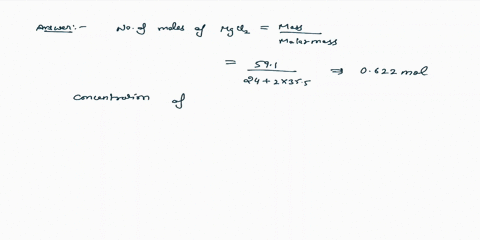 Answer:- No. of moles of MgCl2 = Mass / Molar mass
= 59.1 / 24+2×35.5 ⇒ 0.622 mol
Concentration of